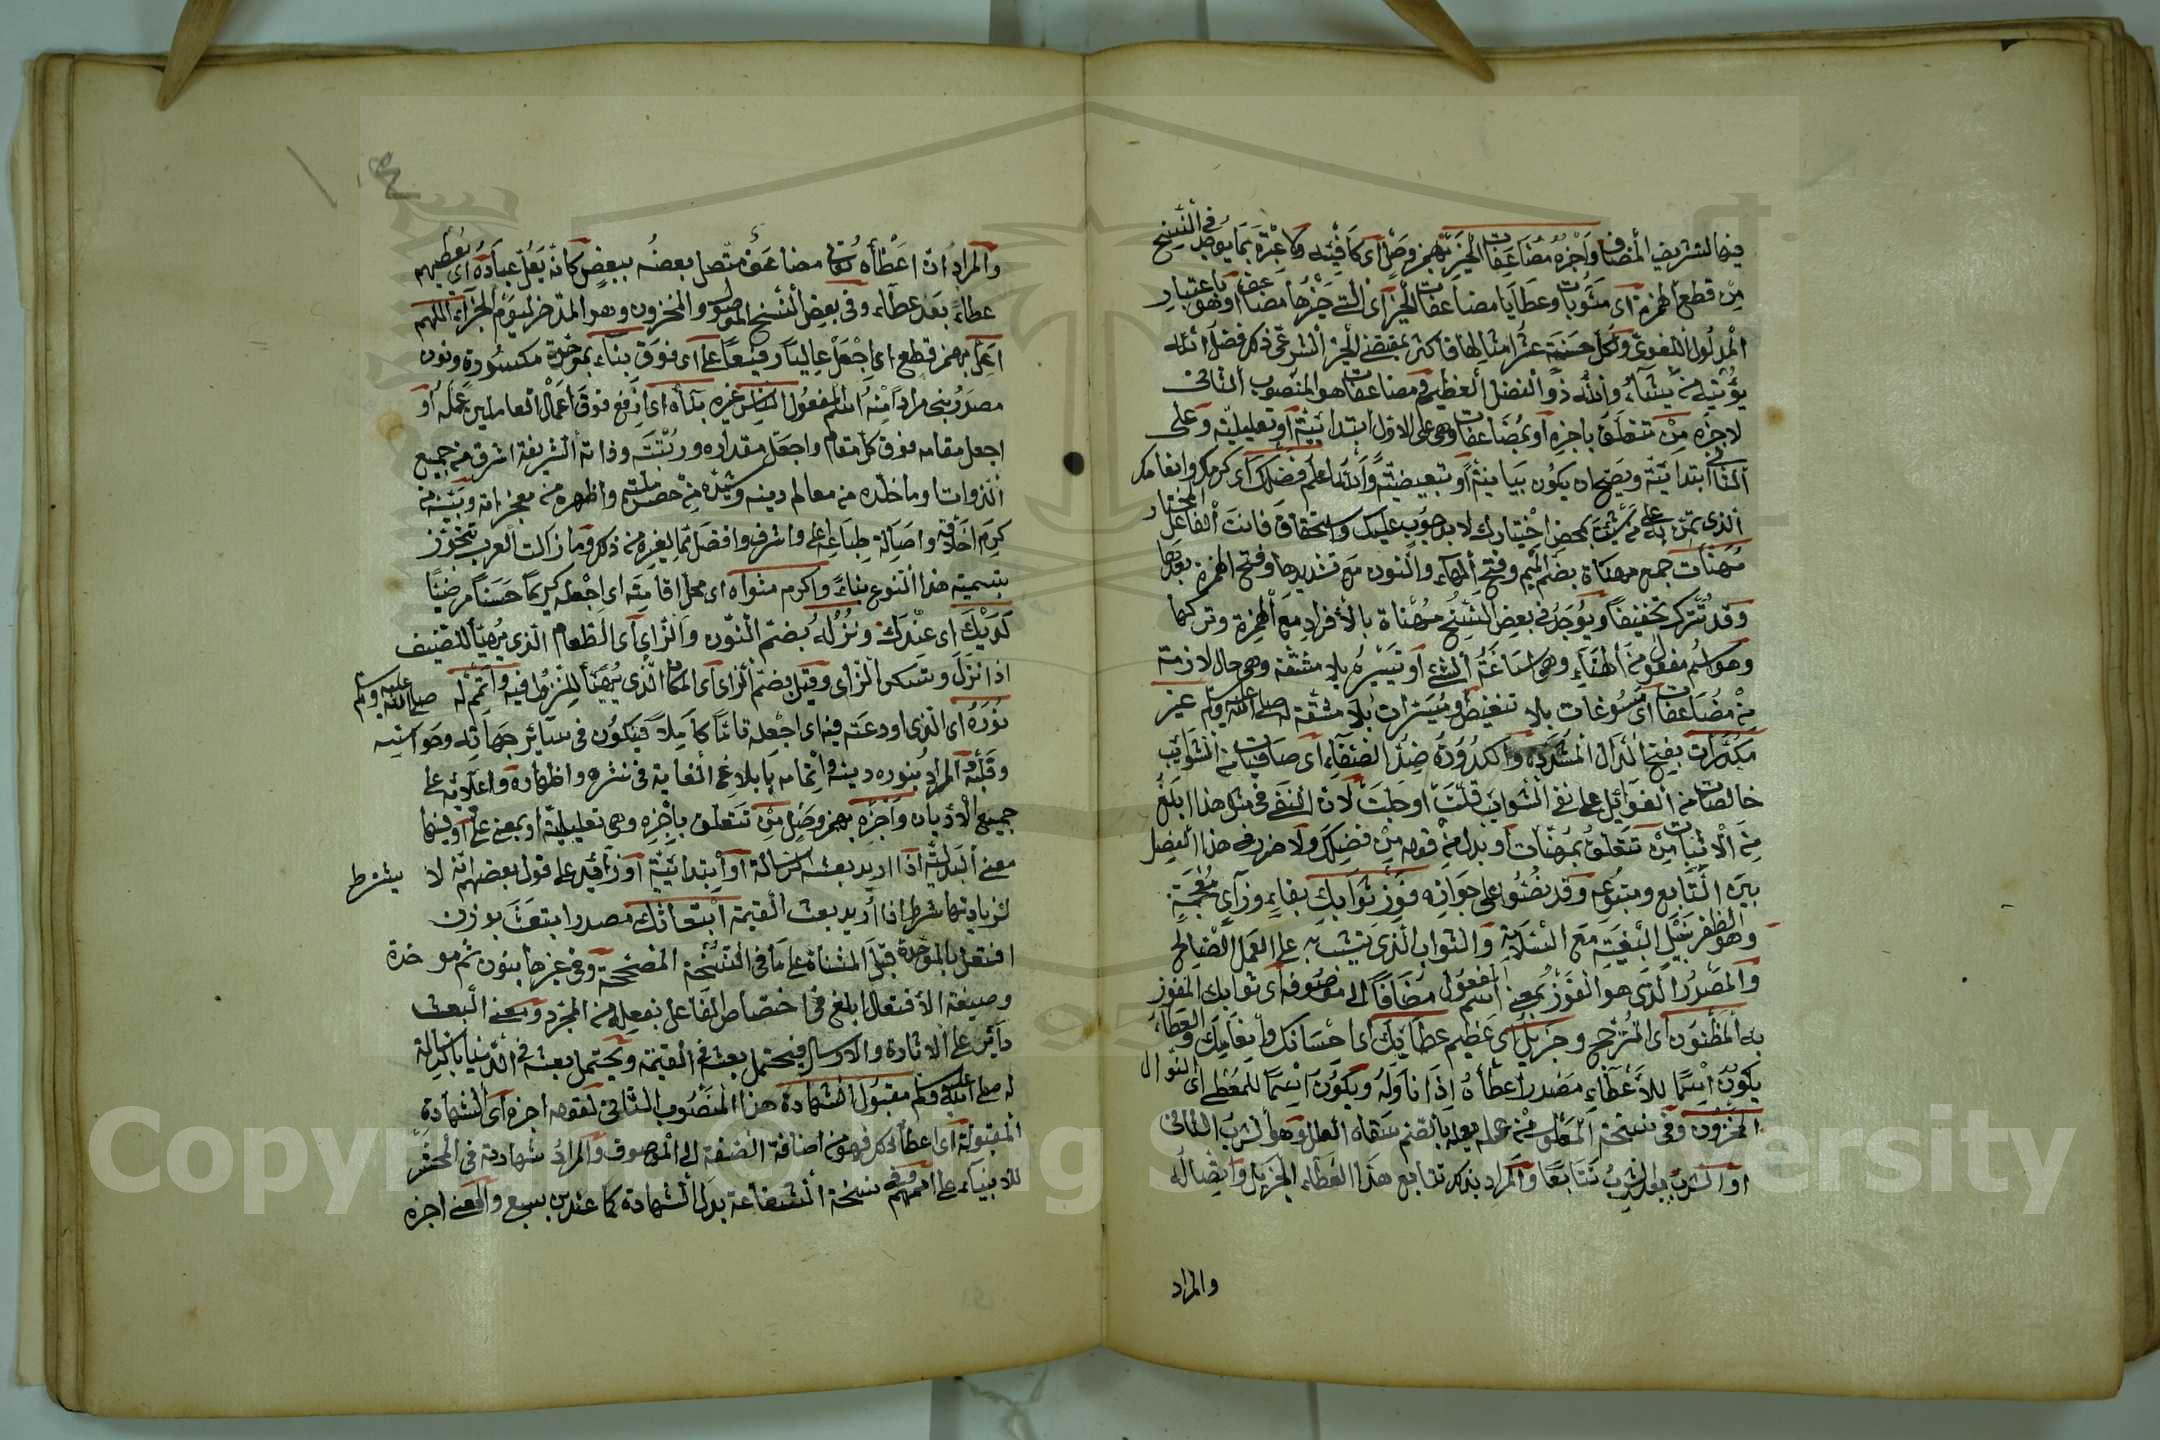 فيها لتشريف المضاف واجزه مضاعفات الخير بهمز وصل اى كافيه ولا عبرة بما يوجد فى النسخ
من قطع الهمزة اى مثوبات وعطايا مضاعفات الخير اى التى خيرها مضاعف وهو باعتبار
المدلول اللغوى ولكل حسنة عشر امثالها فاكثر بمقتضى الخبر الشرعى ذكر فضل الله
يؤتيه من يشاء والله ذو الفضل العظيم فمضاعفات هو المنصوب الثانى
لاجزه من تتعلق باجزه او بمضاعفات وهى على الاول ابتدائية او تعليلية وعلى
الثانى ابتدائية ويصح ان يكون بيانية او تبعيضية والله اعلم فضلك اى كرمك وانعامك
الذى تمن به على من شئت بمحض اختيارك لا بوجوب عليك واستحقاق فانت الفاعل المختار
مهنات جمع مهناة بضم الميم وفتح الهاء والنون مع تشديدها وفتح الهمزة بعدها
وقد تترك تخفيفا ويوجد فى بعض النسخ مهناة بالافراد مع الهمزة وتركها
وهو اسم مفعول من الهناء وهى اساغة الشئ او تيسيره بلا مشقة وهى حال لازمة
من مضاعفات اى مسوغات بلا تنغيص وميسرات بلا مشقة له صلى الله عليه وسلم غير
مكدرات بفتح الدال المشددة والكدورة ضد الصفاء اى صافيات من الشوايب
خالصات من الغوائل على نفى الشوايب قلت او جلت لان النفى فى مثل هذا ابلغ
من الاثبات من تتعلق بمهنات او بدل من قوله من فضلك ولا ضرر فى هذا الفصل
بين التابع ومتبوعه وقد نصوا على جوازه فوز ثوابك بفاء وزاى معجمة
وهو الظفر بنيل البغية مع السلامة والثواب الذى يثيب به على العمل الصالح
والمصدر الذى هو الفوز بمعنى اسم المفعول مضافا الى موصوفه اى ثوابك المفوز
به المظنون اى المترجح وجزيل اى عظيم عطائك اى احسانك وانعامك والعطاء
يكون اسما للاعطاء مصدر اعطاه اذا ناوله ويكون اسما للمعطى اى النوال
المخزون وفى نسخة المعلول من عله يعله بالضم سقاه العلل وهو الشرب الثانى
او الشرب بعد الشرب تتابعا والمراد بذكر تتابع هذا العطاء الجزيل واتصاله
والمراد
والمراد ان اعطاه تعالى مضاعف متصل بعضه ببعض كانه يعل عباده اى يعطيهم
عطاء بعد عطاء وفى بعض النسخ الموصول والمخزون وهو المدخر ليوم الجزاء اللهم
اعل بهمز قطع اى اجعل عاليا رفيعا على اى فوق بناء بموحدة مكسورة ونون
مصدر بنى مرادا منه اسم المفعول الناس غيره بناه اى ارفع فوق اعمال العاملين عمله او
اجعل مقامه فوق كل مقام واجعل مقداره ورتبته وذاته الشريفة اشرف من جميع
الذوات وما خلده من معالم دينه وشيده من حصن ملته واظهره من معجزاته وبينه من
كرم اخلاقه واصالة طباعه على واشرف وافضل مما لغيره من ذكر وما زالت العرب تتجوز
بتسمية هذا النوع بناء واكرم مثواه اى محل اقامته اى اجعله كريما حسنا مرضيا
لديك اى عندك ونزله بضم النون والزاى اى الطعام الذى يهيأ للضيف
اذا نزل وتسكن الزاى وقيل بضم الزاى اى المكان الذى يهيأ للنزول فيه واتمم له صلى الله عليه وسلم
نوره اى الذى اودعته فيه اى اجعله تاما كاملا فيكون فى سائر جهاته وحواسه
وقلبه والمراد بنوره دينه واتمامه بابلاغه الغاية فى نشره واظهاره واعلائه على
جميع الاديان واجزه بهمز وصل من تتعلق باجزه وهى تعليلية او بمعنى على او فيها
معنى البدلية اذا اريد بعثه الرسالة او ابتدائية او زائدة على قول بعضهم انه لا يشترط
لزيادتها شرط اذا اريد بعث القيمة ابتعاثك مصدر ابتعث بوزن
افتعل بالموحدة قبل المثناة على ما فى النسخة المصححة وفى غيرها بنون ثم موحدة
وصيغة الافتعال ابلغ فى اختصاص الفاعل بفعله من المجرد ومعنى البعث
دائر على الاثارة والارسال فيحتمل بعثه فى القيمة ويحتمل بعثه فى الدنيا بالرسالة
له صلى الله عليه وسلم مقبول الشهادة هذا المنصوب الثانى لقوله اجزه اى الشهادة
المقبولة اى اعطاء ذلك فهو من اضافة الصفة الى الموصوف والمراد شهادته فى المحشر
للانبياء على اممهم وفى نسخة الشفاعة بدل الشهادة كما عند ابن سبع والمعنى اجزه